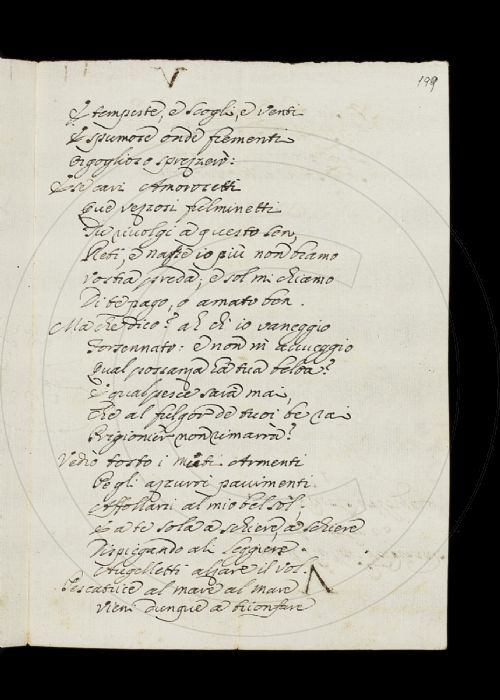 199
E tempeste, e scogli, e venti
E spumose onde frementi
Orgoglioso sprezzerò:
E se cari Amorosetti
Que vezzosi fulminetti
Tu rivolgi a questo sen,
Reti, e nasse io più non bramo
Vostra preda, e sol mi chiamo
Di te pago, o amato ben.
Ma che dico? ah ch' io vaneggio
Forsennato: e non m' avveggio
Qual possanza ha tua beltà?
E qual pesce sarà mai,
Che al fulgor de tuoi be rai
Prigionier non rimarrà?
Vedrò tosto i muti Armenti
De gli azzurri pavimenti
Affollarsi al mio bel sol,
E a te sola a schiere, a schiere
Dispiegando ali leggiere
Augelletti alzare il vol.
Pescatrice al mare al mare
Vieni dunque a trionfare